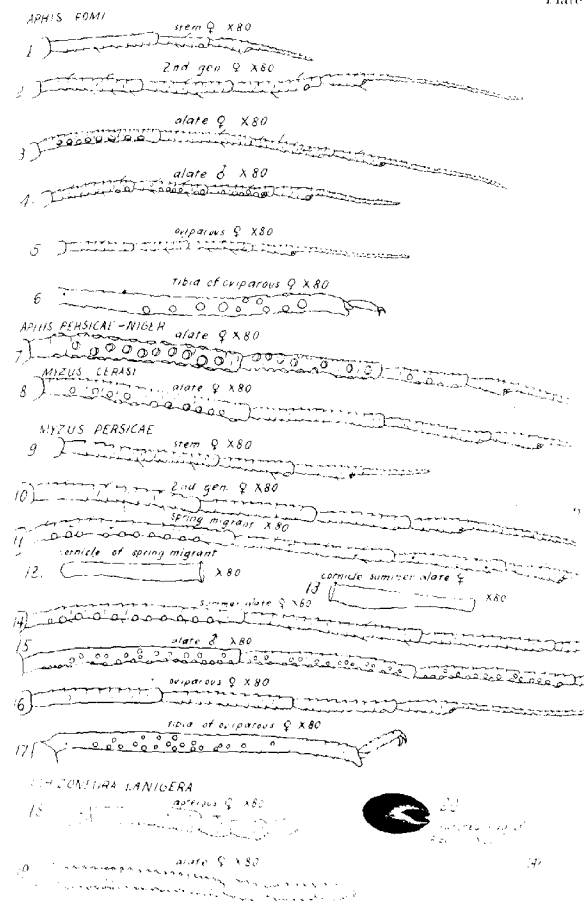 Plate
APHIS POMI
1 stem ♀ X80
2 2nd gen ♀ X80
3 alate ♀ X80
4. alate ♂ X80
5 oviparous ♀ X80
6 Tibia of oviparous ♀ X80
APHIS PERSICAE-NIGER
7 alate ♀ X80
MYZUS CERASI
8 alate ♀ X80
MYZUS PERSICAE
9 stem ♀ X80
10 2nd gen. ♀ X80
11 spring migrant X80
12. cornicle of spring migrant X80
13 cornicle summer alate ♀ X80
14 summer alate ♀ X80
15 alate ♂ X80
16 oviparous ♀ X80
17 Tibia of oviparous ♀ X80
LANIGERA
18 apterous ♀ X80
20
alate ♀ X80